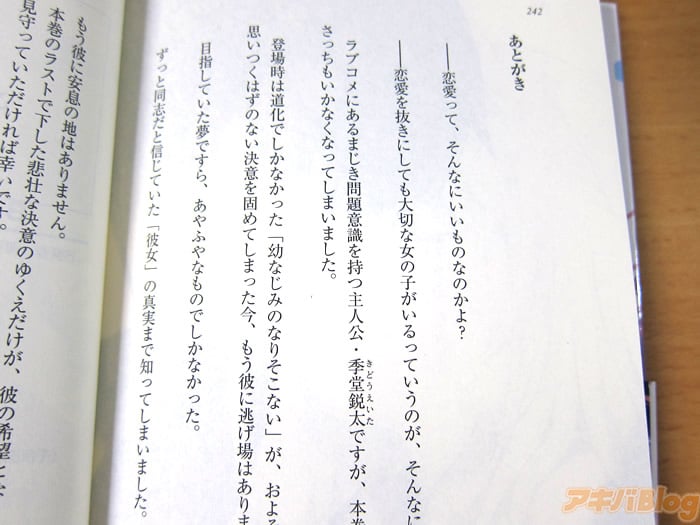 242
あとがき
――恋愛って、そんなにいいものなのかよ?
――恋愛を抜きにしても大切な女の子がいるっていうのが、そんなに
ラブコメにあるまじき問題意識を持つ主人公・季堂鋭太ですが、本巻
きどうえいた
さっちもいかなくなってしまいました。
登場時は道化でしかなかった「幼なじみのなりそこない」が、およそ
思いつくはずのない決意を固めてしまった今、もう彼に逃げ場はありま
目指していた夢ですら、あやふやなものでしかなかった。
ずっと同志だと信じていた「彼女」の真実まで知ってしまいました。
もう彼に安息の地はありません。
本巻のラストで下した悲壮な決意のゆくえだけが、彼の希望とな
見守っていただければ幸いです。
アキバBlog